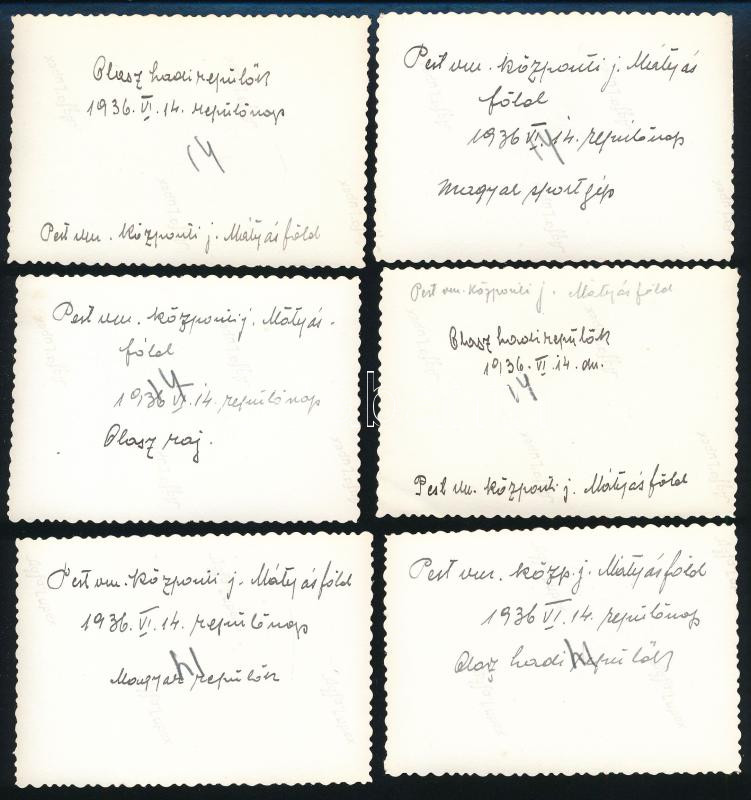 Olasz hadirepülők
1936. VI. 14. repülőnap
14
Pest vm. központi j. Mátyásföld
Pest vm. központi j. Mátyás
föld
1936 VI. 14. repülőnap
14
magyar sportgép
Pest vm. központi j. Mátyás-
föld
1936 VI. 14. repülőnap
14
Olasz raj.
Pest vm. központi j. Mátyásföld
Olasz hadirepülők
1936. VI. 14. du.
14
Pest vm. központi j. Mátyásföld
Pest vm. központi j. Mátyásföld
1936. VI. 14. repülőnap
14
Magyar repülők
Pest vm. közp. j. Mátyásföld
1936 VI. 14. repülőnap
14
Olasz hadi repülők